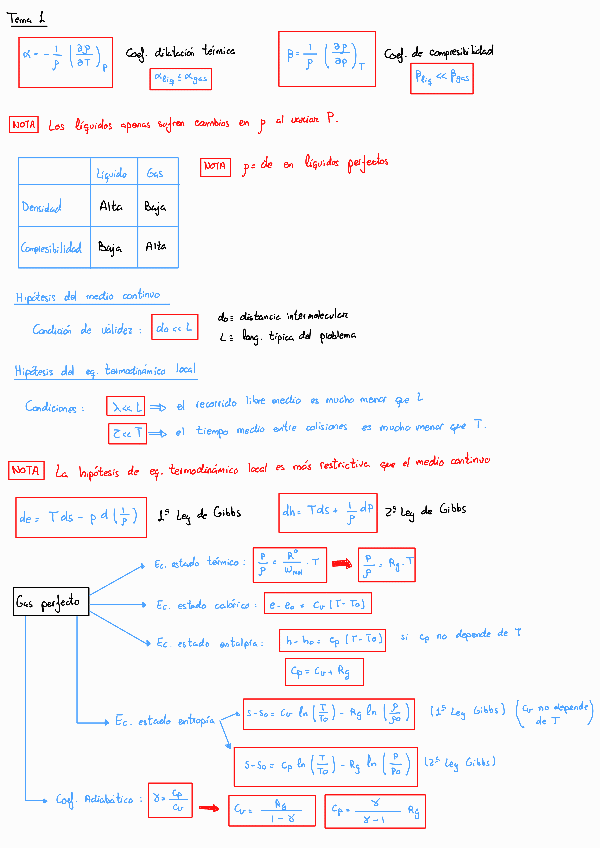 Tema 1
α = - 1/ρ (∂ρ/∂T)_P Coef. dilatación térmica
α_liq ≤ α_gas
β = 1/ρ (∂ρ/∂p)_T Coef. de compresibilidad
β_liq << β_gas
NOTA Los líquidos apenas sufren cambios en ρ al variar P.
Líquido Gas
Densidad Alta Baja
Compresibilidad Baja Alta
NOTA ρ = cte en líquidos perfectos
Hipótesis del medio continuo
Condición de validez : do << L
do ≡ distancia intermolecular
L ≡ long. típica del problema
Hipótesis del eq. termodinámico local
Condiciones : λ << L ⇒ el recorrido libre medio es mucho menor que L
τ << T ⇒ el tiempo medio entre colisiones es mucho menor que T.
NOTA La hipótesis de eq. termodinámico local es más restrictiva que el medio continuo
de = T ds - p d (1/ρ) 1ª Ley de Gibbs
dh = T ds + 1/ρ dp 2ª Ley de Gibbs
Gas perfecto
Ec. estado térmico : P/ρ = R°/W_mol · T → P/ρ = Rg · T
Ec. estado calórico : e - e₀ = Cv (T - T₀)
Ec. estado entalpía : h - h₀ = cp (T - T₀) si cp no depende de T
Cp = Cv + Rg
Ec. estado entropía
s - s₀ = Cv ln (T/T₀) - Rg ln (ρ/ρ₀) (1ª Ley Gibbs) (cv no depende de T)
s - s₀ = Cp ln (T/T₀) - Rg ln (P/P₀) (2ª Ley Gibbs)
Coef. Adiabático : γ = Cp/Cv → Cv = Rg/(1 - γ) Cp = γ/(γ - 1) Rg